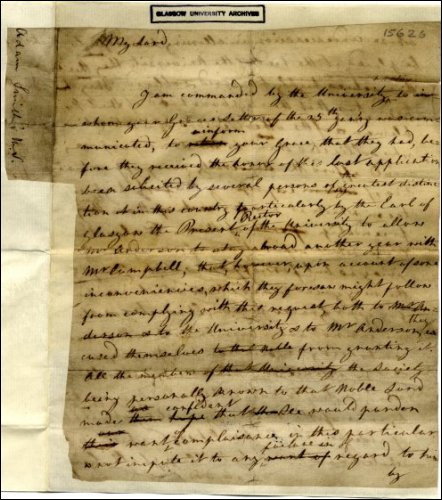 GLASGOW UNIVERSITY ARCHIVES
15626
Adam Smith's
My Lord
I am commanded by the University, to
whom your Grace's letter of the 25th Janry was com-
municated, to inform your Grace, that they had, be
fore they received the honor of this last application
been solicited by several persons of greatest distinc
tion in this country & particularly by the Earl of
Glasgow the Present Rector of the University to allow
Mr Anderson to stay abroad another year with
Mr Campbell; that, however, upon account of some
inconveniencies, which they foresaw might follow
from complying with this request, both to
the University & to Mr Anderson, they
cused themselves to that noble from granting it.
All the members of the University the Society
being personally known to that Noble Lord
made us confident that he would pardon
this want complaisance in this particular
& not impute it to any failure in want of regard to him
by